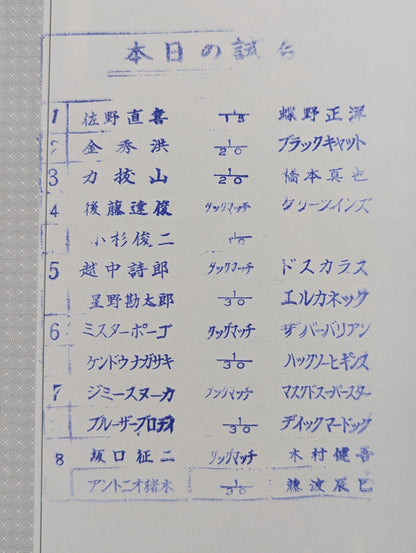 本日の試合
1 佐野直喜 1/15 蝶野正洋
2 金秀洪 1/20 ブラックキャット
3 力抜山 1/20 橋本真也
4 後藤達俊 タッグマッチ
小杉俊二 1/20
5 越中詩郎 タッグマッチ ドスカラス
星野勘太郎 1/30 エルカネック
6 ミスターポーゴ タッグマッチ ザバーバリアン
ケンドウナガサキ 1/30 ハックソーヒギンス
7 ジミースヌーカ タッグマッチ マスクドスーパースター
ブルーザーブロディ 1/30 ディックマードック
8 坂口征二 タッグマッチ 木村健吾
アントニオ猪木 1/30 藤波辰巳